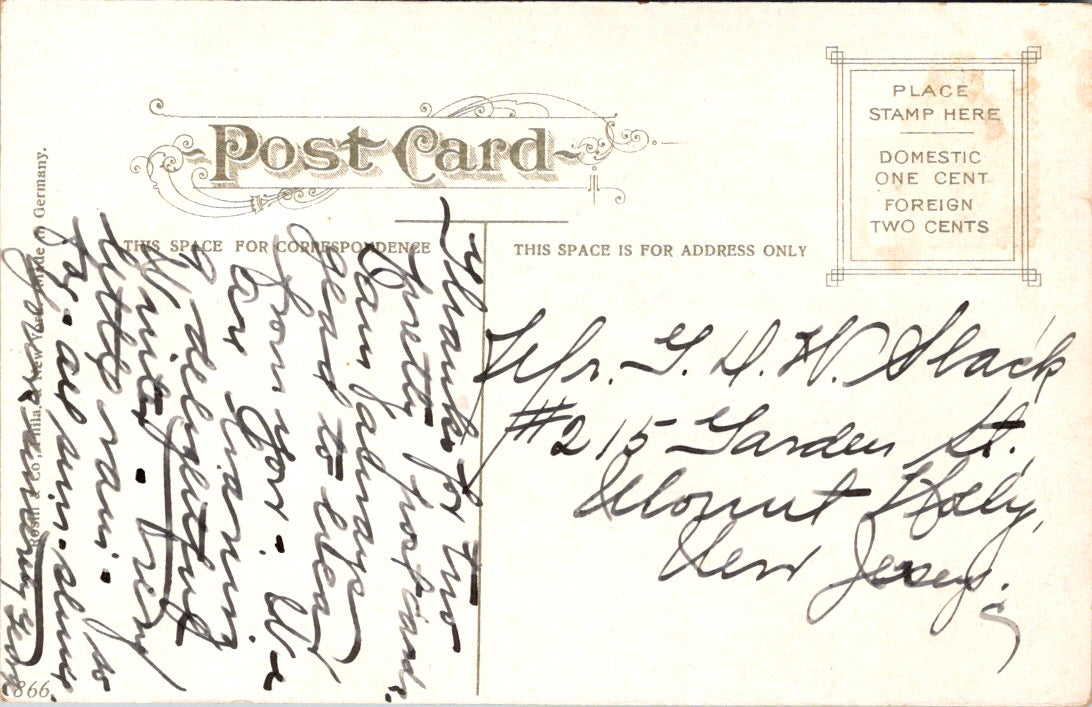 Post Card
PLACE
STAMP HERE
DOMESTIC
ONE CENT
FOREIGN
TWO CENTS
THIS SPACE FOR CORRESPONDENCE
THIS SPACE IS FOR ADDRESS ONLY
Thanks for two
pretty post cards.
I am always
glad to hear
from you. We
are having
a delightful
Winter. Very
little rain so
far. and sun-shine
Mr. G. D. W. Slack
#215 Garden St.
Mount Holly,
New Jersey.
Rosin & Co., Phila. & New York. Made in Germany.
866.